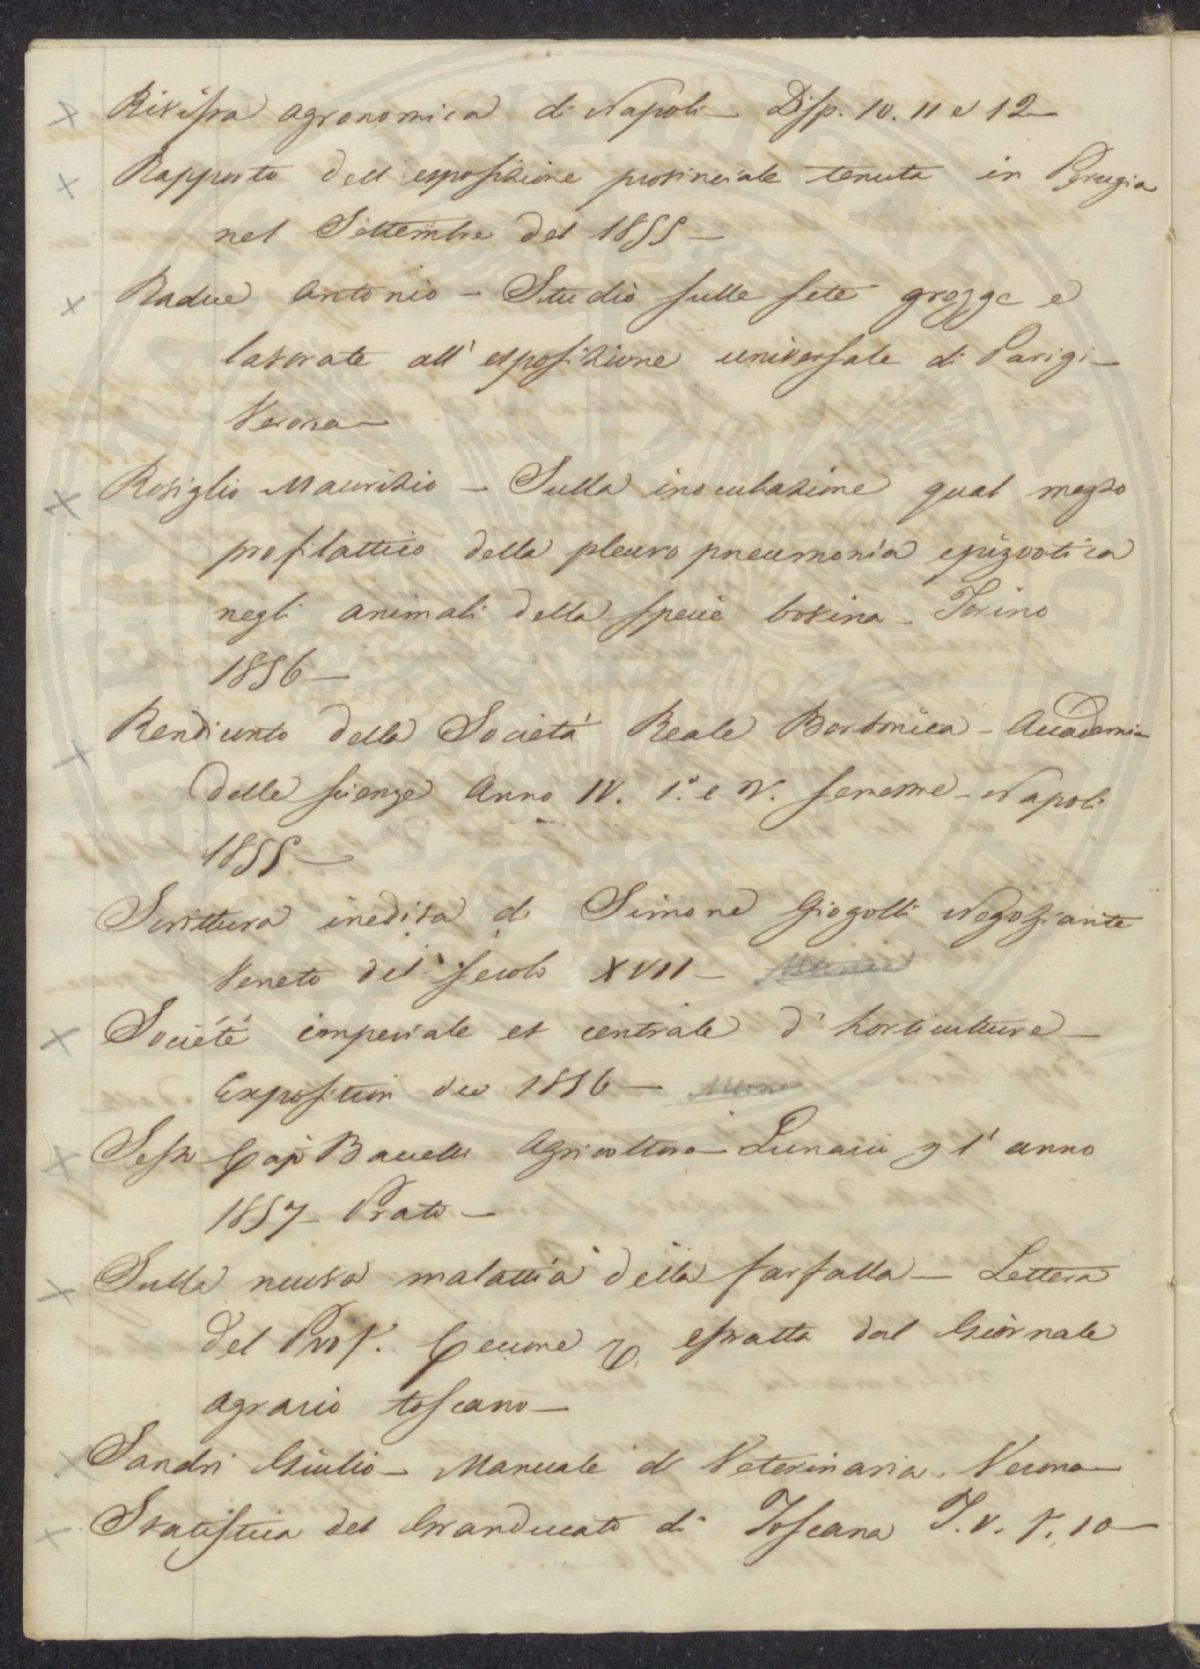 Rivista agronomica di Napoli — Disp. 10. 11 e 12 —
Rapporto dell'esposizione provinciale tenuta in Perugia
nel Settembre del 1855 —
Radice Antonio — Studio sulle sete grezze e
lavorate all'esposizione universale di Parigi —
Verona —
Rosiglio Maurizio — Sulla inoculazione qual mezzo
profilattico della pleuro pneumonia epizootica
negli animali della specie bovina — Torino
1856 —
Rendiconto della Società Reale Borbonica — Accademia
delle scienze Anno IV. 1.° e semestre — Napoli
1855 —
Scrittura inedita di Simone Giogolli Negoziante
Veneto del secolo XVII —
Société imperiale et centrale d'horticulture —
Exposition de 1856 —
Bacelli Agricoltura — Lunario p l'anno
1857 — Prato —
Sulla nuova malattia della farfalla — Lettera
del Prof. estratta dal Giornale
agrario toscano —
Sandri Giulio — Manuale di Veterinaria. Verona —
Statistica del Granducato di Toscana T. V. 10 —